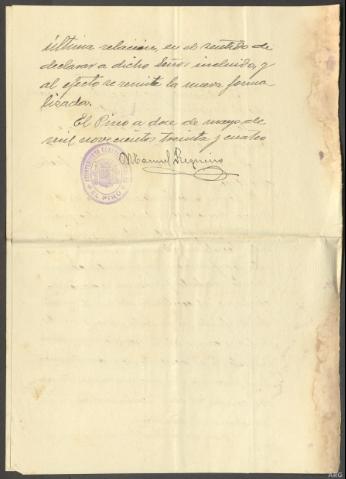 última relación, en el sentido de
declarar a dicho Señor incluido, y
al efecto se remite la nueva forma
lizada.
El Pino a doce de mayo de
mil novecientos treinta y cuatro
Manuel
EL PINO
ARG